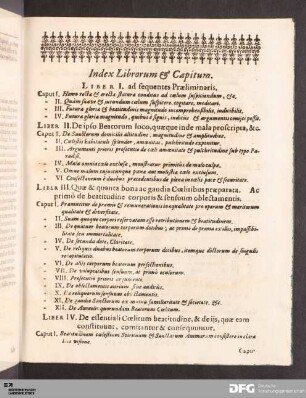 Index Librorum & Capitum.
LIBER I. ad sequentes Præliminaris,
Caput I. Homo recta & erecta statura conditus ad cœlum suspiciendum, &c.
II. Quàm suave & jucundum cœlum suspicere, cogitare, medicare.
III. Futura gloria & beatitudinis magnitudo incomprehensibilis, indicibilis.
IV. Futura gloria magnitudo, quibus è signis, indiciis & argumentis conjici possit.
LIBER II. De ipso Beatorum loco, quæque inde mala proscripta, &c.
Caput I. De Sanctorum domicilii altitudine, magnitudine & amplitudine.
II. Cœlestis habitaculi splendor, amœnitas, pulchritudo exponitur.
III. Argumenti prioris profecutio de cœli amœnitate & pulchritudine sub typo Paradisi.
IV. Mala omnia cœlo exclusa, monstratur primitùs de malo culpæ.
V. Omne malum cujuscunque pœna aut molestia cœlo exclusum.
VI. Consectarium è duobus præcedentibus de plena in cœlis pace & securitate.
LIBER III. Quæ & quanta bona ac gaudia Cœlitibus præparata. Ac
primò de beatitudine corporis & sensuum oblectamentis.
Caput I. Præmittitur de præmii & remunerationis inæqualitate pro operum & meritorum
qualitate & diversitate.
II. Suum quoque corpori reservatum esse retributionem & beatitudinem.
III. De quatuor beatorum corporum dotibus; ac primò de prima ex illis, impassibilitate seu immortalitate.
IV. De secunda dote, Claritate.
V. De reliquis duabus beatorum corporum dotibus, itemque dictorum de singulis recapitulatio.
VI. De aliis corporum beatorum perfectionibus.
VII. De voluptatibus sensuum, ac primò oculorum.
VIII.
IX. De oblectamentis aurium sive auditus.
X. De reliquorum sensuum oblectamentis.
XI. De gaudio Sanctorum ex mutua familiaritate & societate, &c.
XII. De Aureolis quorundam Beatorum Cœlitum.
LIBER IV. De essentiali Cœlitum beatitudine, & de ijs, quæ eam
constituunt, comitantur & consequuntur.
Caput I. Beatitudinem cœlestium Spirituum & Sanctarum Animarum consistere in clara
Dei visione.
Caput
DFG Deutsche
Forschungsgemeinschaft